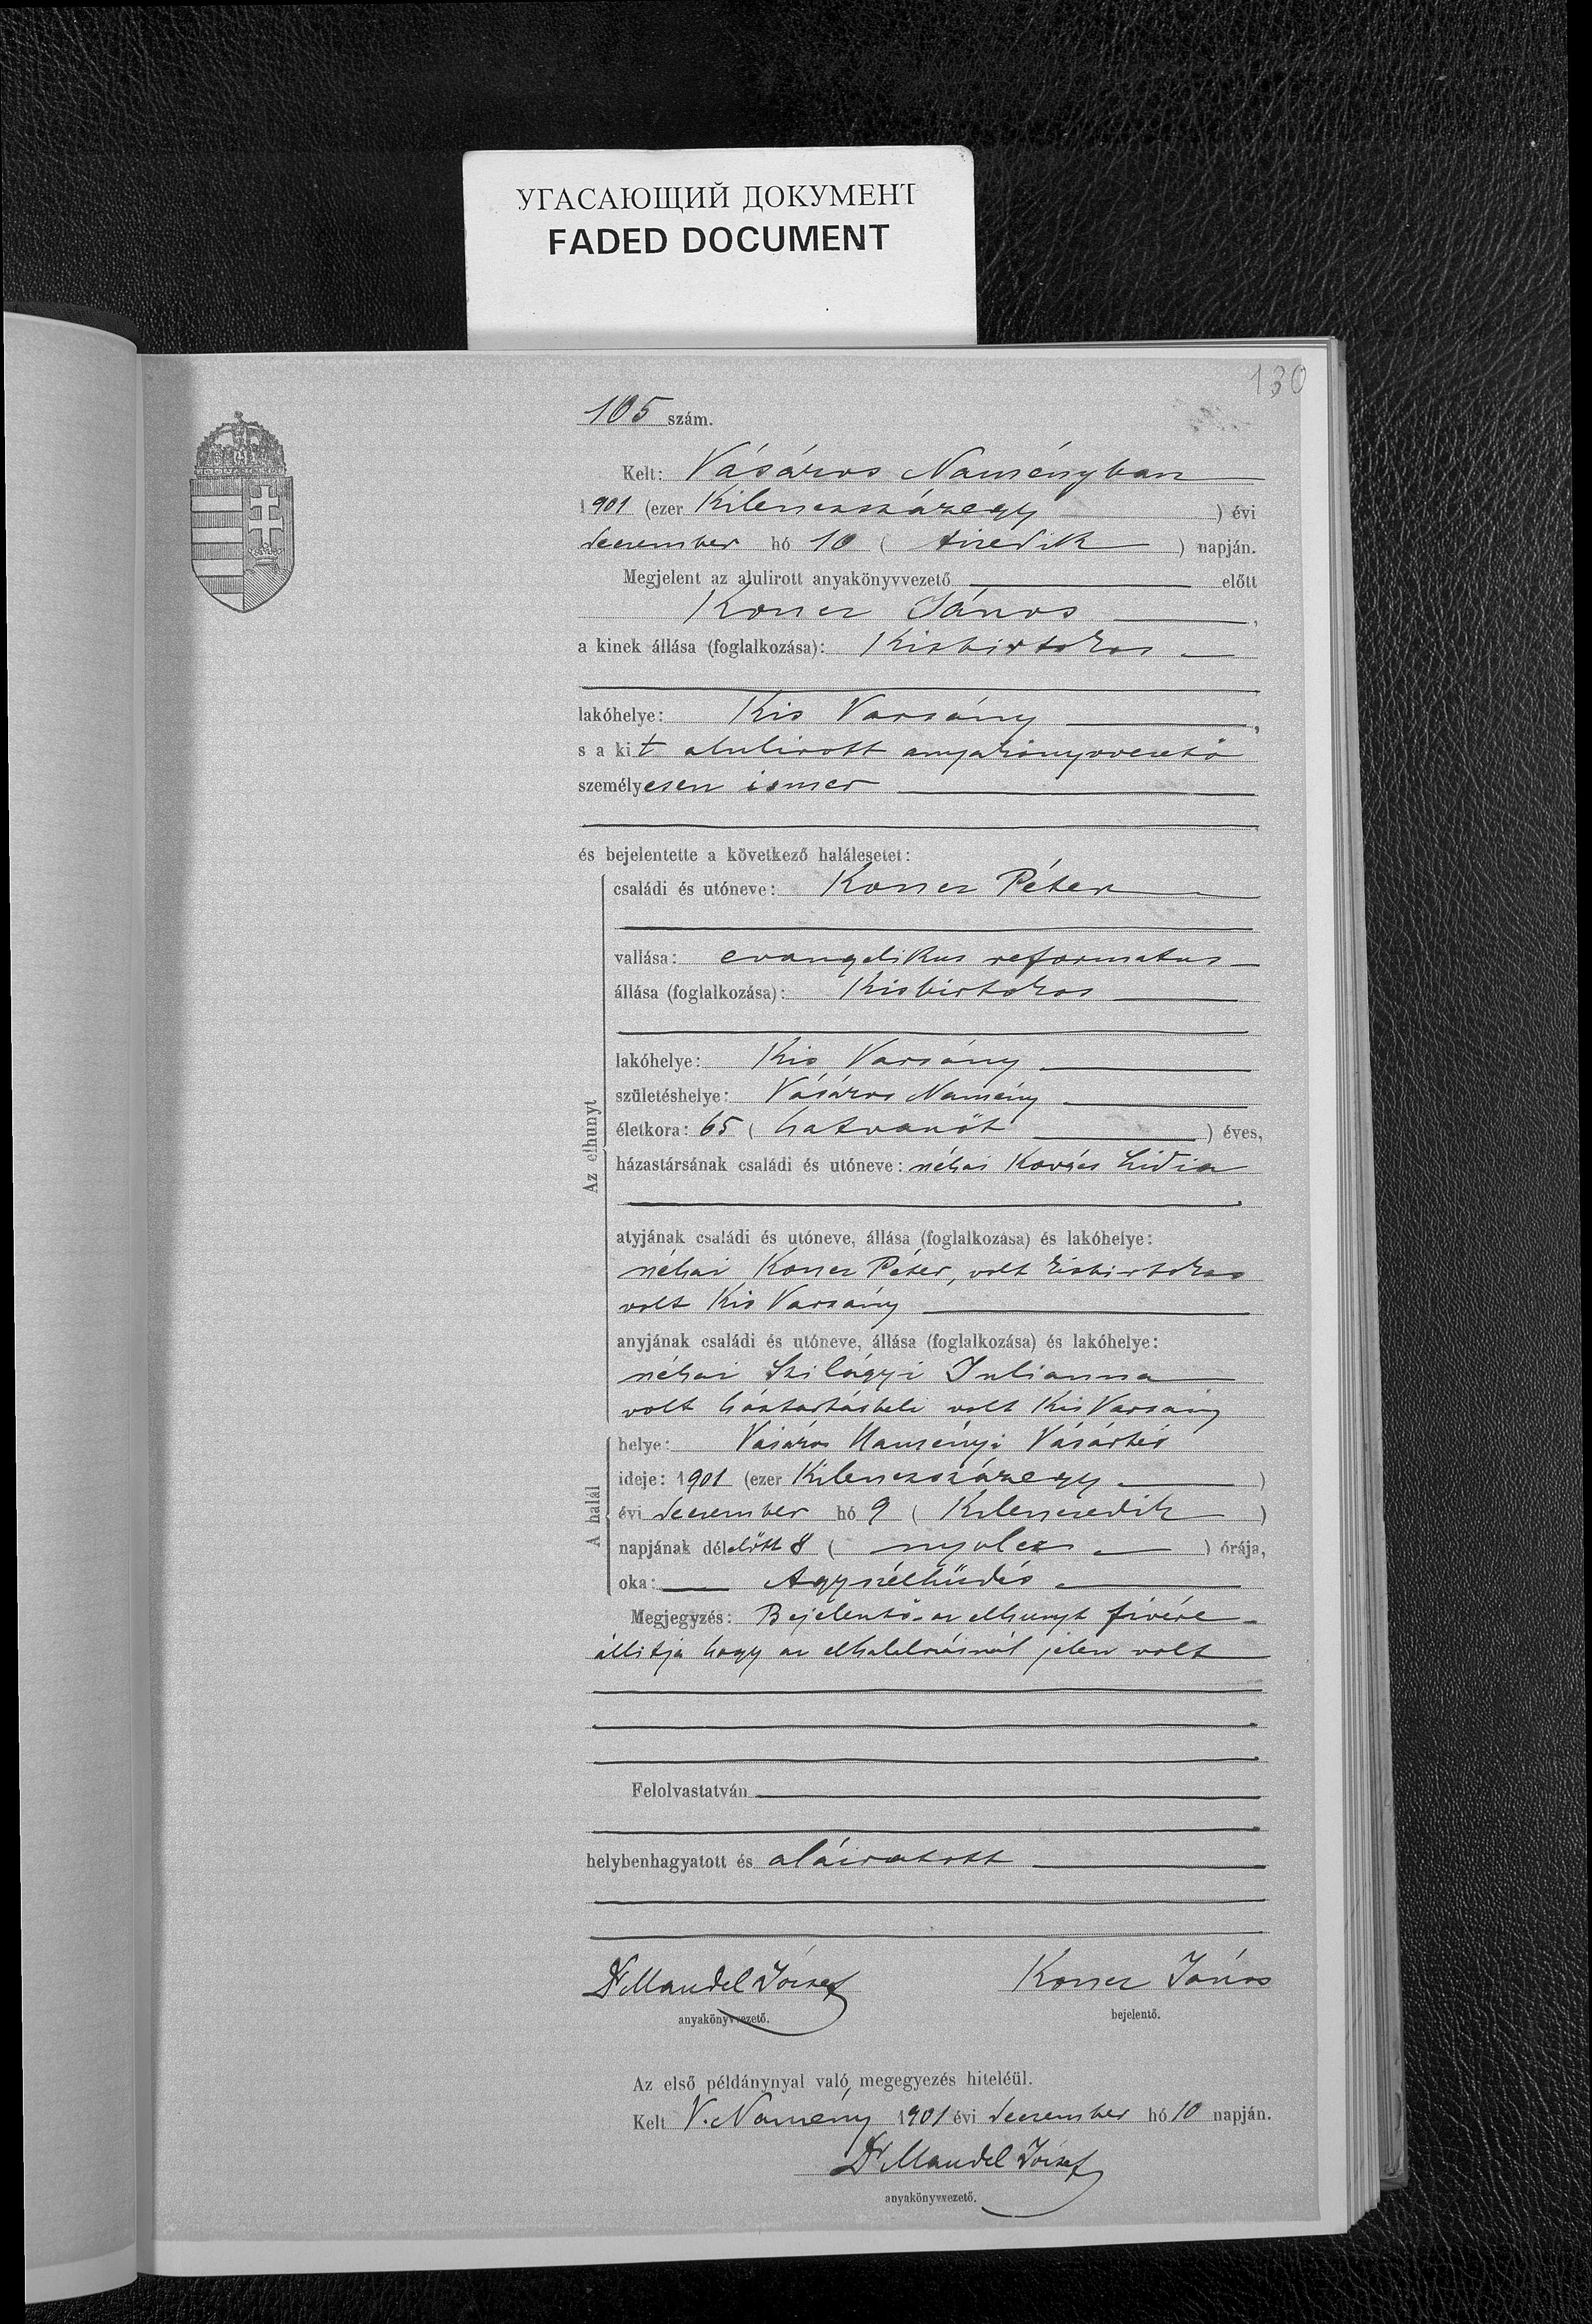 УГАСАЮЩИЙ ДОКУМЕНТ
FADED DOCUMENT
130
105 szám.
Kelt: Vásáros Naményban
1901 (ezer Kilenczszázegy) évi
deczember hó 10 (tizedik) napján.
Megjelent az alulirott anyakönyvvezető előtt
Koncz János,
a kinek állása (foglalkozása): Kisbirtokos
lakóhelye: Kis Varsány,
s a kit alulirott anyakönyvvezető
személyesen ismer
és bejelentette a következő halálesetet:
Az elhunyt
családi és utóneve: Koncz Péter
vallása: evangelikus reformatus
állása (foglalkozása): Kisbirtokos
lakóhelye: Kis Varsány
születéshelye: Vásáros Namény
életkora: 65 (hatvanöt) éves,
házastársának családi és utóneve: néhai Kovács Lidia
atyjának családi és utóneve, állása (foglalkozása) és lakóhelye:
néhai Koncz Péter, volt kisbirtokos
volt Kis Varsány
anyjának családi és utóneve, állása (foglalkozása) és lakóhelye:
néhai Szilágyi Julianna
volt háztartásbeli volt Kis Varsány
A halál
helye: Vásáros Naményi Vásártér
ideje: 1901 (ezer Kilenczszázegy)
évi deczember hó 9 (Kilenczedik)
napjának délelőtt 8 (nyolcz) órája,
oka: Agyszélhűdés
Megjegyzés: Bejelentő az elhunyt fivére
állitja hogy az elhalálozásnál jelen volt
Felolvastatván
helybenhagyatott és aláiratott
Dr Mandel József
anyakönyvvezető.
Koncz János
bejelentő.
Az első példánynyal való megegyezés hiteléül.
Kelt V. Namény 1901 évi deczember hó 10 napján.
Dr Mandel József
anyakönyvvezető.